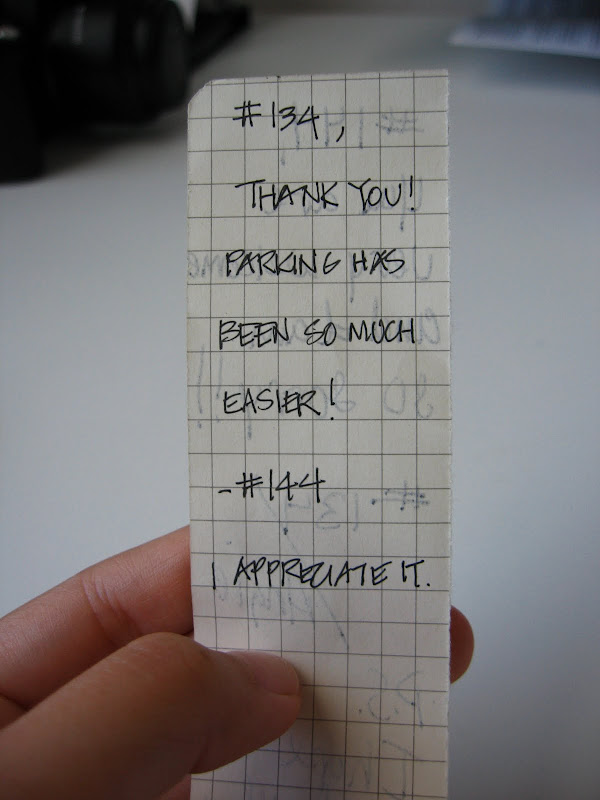 #134,
THANK YOU!
PARKING HAS
BEEN SO MUCH
EASIER!
-#144
I APPRECIATE IT.